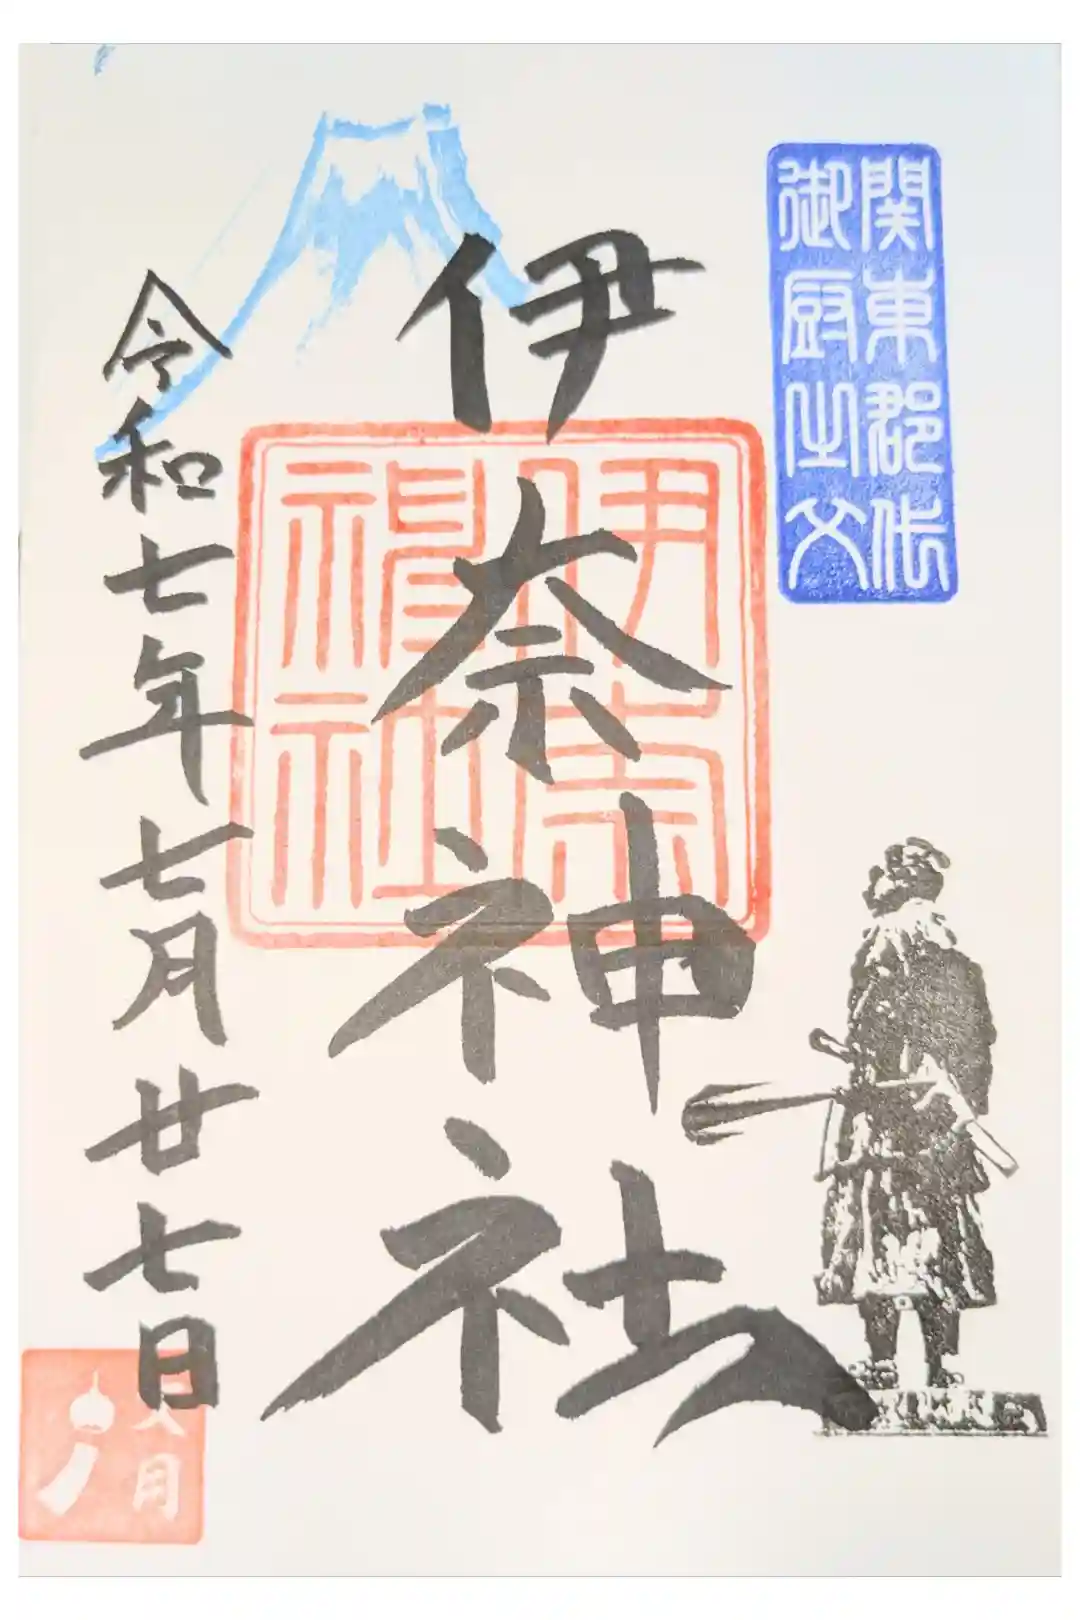 関東郡代
御厨之父
伊奈神社
伊奈
神社
令和七年七月廿七日
文月